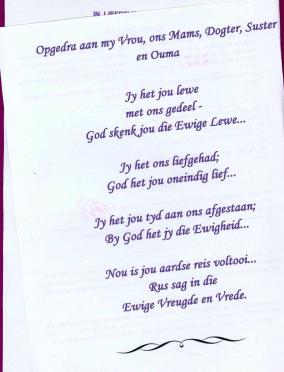 Opgedra aan my Vrou, ons Mams, Dogter, Suster
en Ouma
Jy het jou lewe
met ons gedeel -
God skenk jou die Ewige Lewe...
Jy het ons liefgehad;
God het jou oneindig lief...
Jy het jou tyd aan ons afgestaan;
By God het jy die Ewigheid...
Nou is jou aardse reis voltooi...
Rus sag in die
Ewige Vreugde en Vrede.